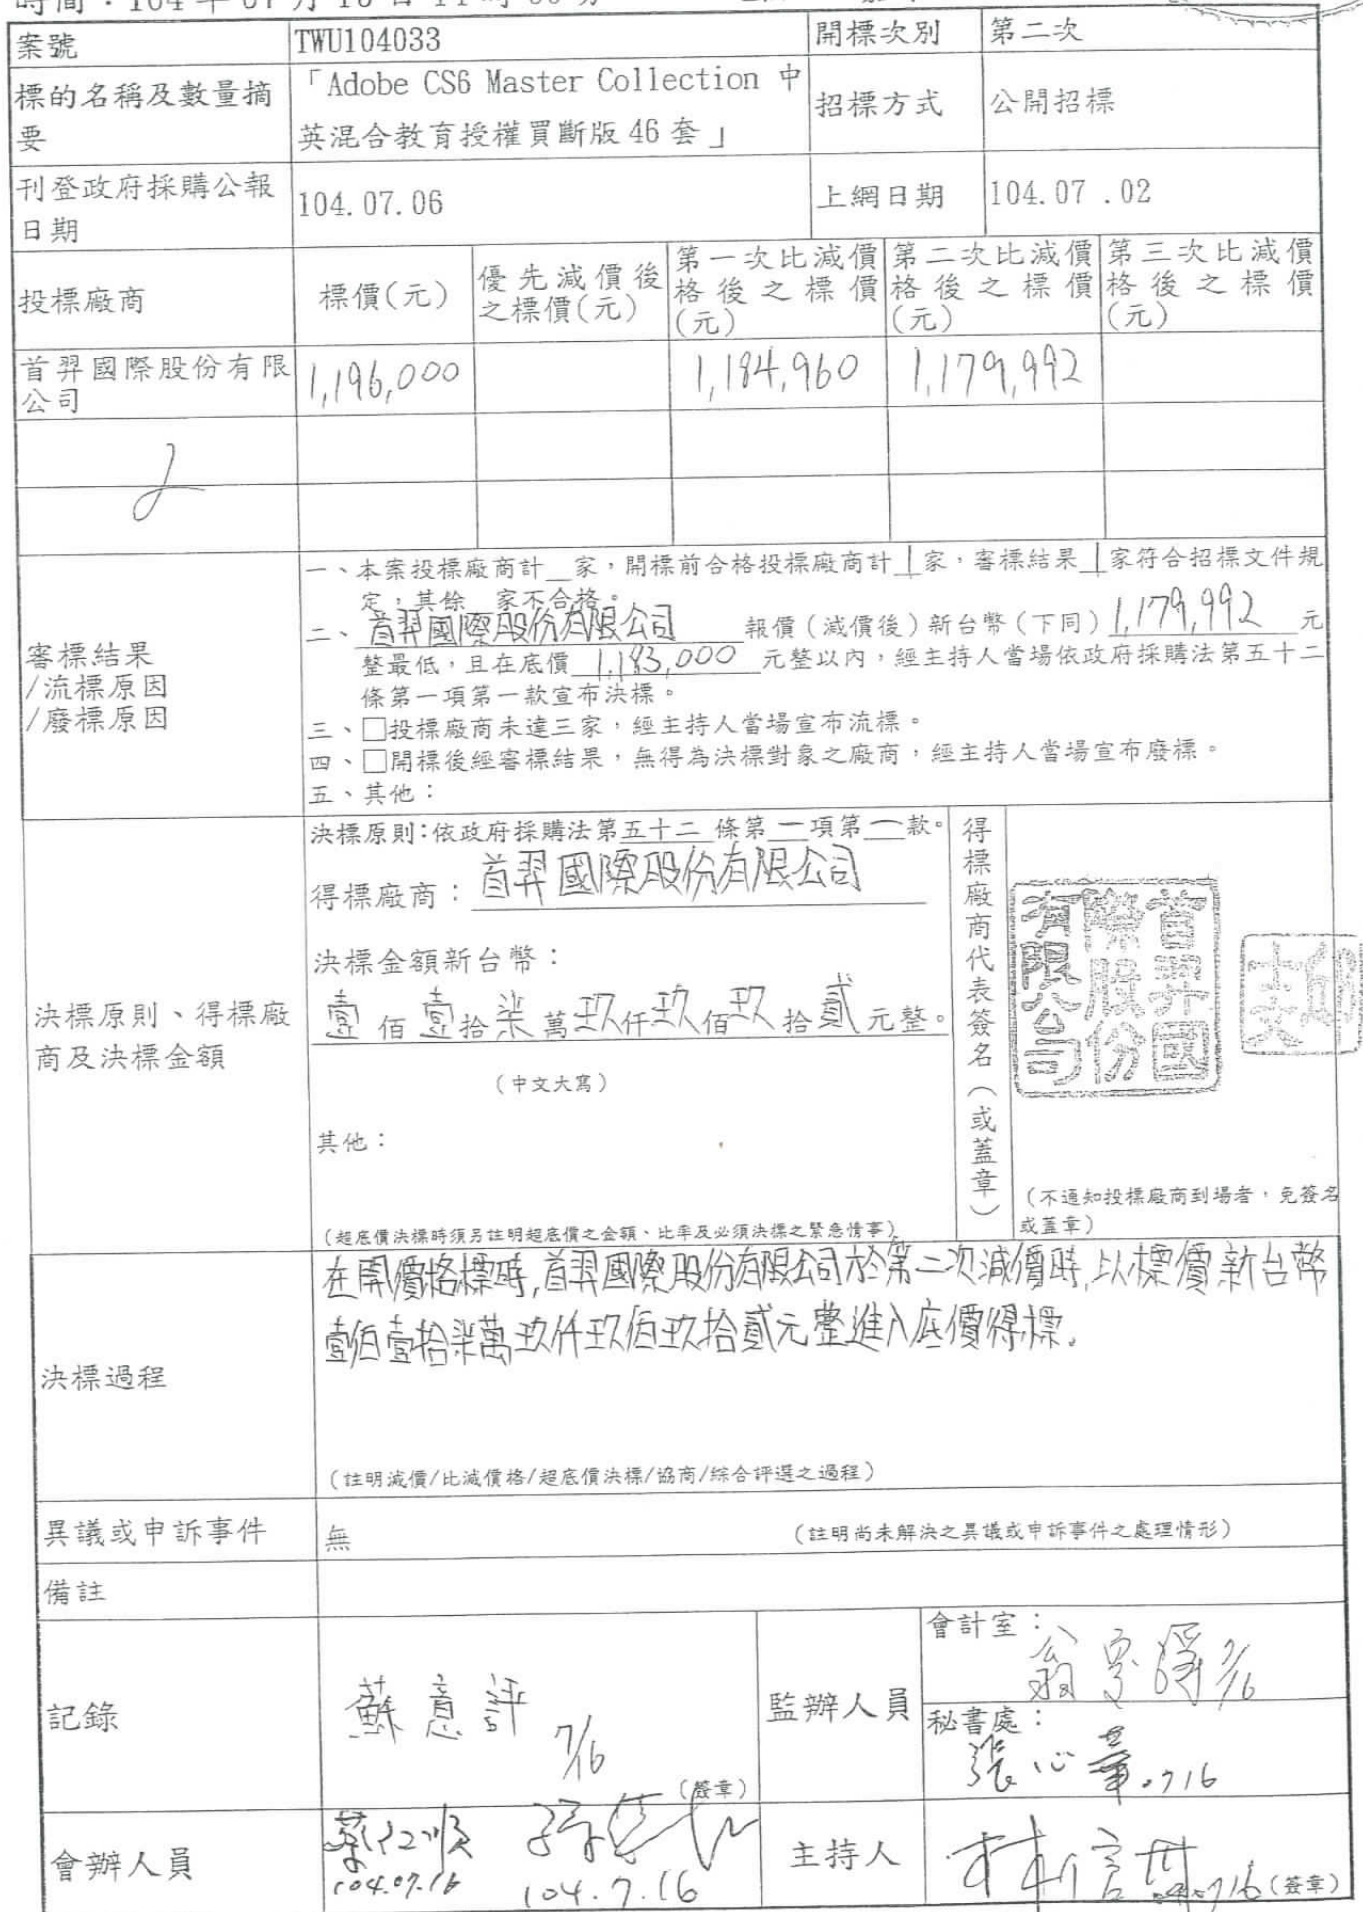 案號 TWU104033 開標次別 第二次
標的名稱及數量摘要 「Adobe CS6 Master Collection 中英混合教育授權買斷版 46 套」 招標方式 公開招標
刊登政府採購公報日期 104.07.06 上網日期 104.07 .02
投標廠商 標價(元) 優先減價後之標價(元) 第一次比減價格後之標價(元) 第二次比減價格後之標價(元) 第三次比減價格後之標價(元)
首羿國際股份有限公司 1,196,000 1,184,960 1,179,992
審標結果
/流標原因
/廢標原因
一、本案投標廠商計__家，開標前合格投標廠商計 1 家，審標結果 1 家符合招標文件規
定，其餘__家不合格。
二、首羿國際股份有限公司 報價（減價後）新台幣（下同）1,179,992 元
整最低，且在底價 1,183,000 元整以內，經主持人當場依政府採購法第五十二
條第一項第一款宣布決標。
三、□投標廠商未達三家，經主持人當場宣布流標。
四、□開標後經審標結果，無得為決標對象之廠商，經主持人當場宣布廢標。
五、其他：
決標原則、得標廠商及決標金額
決標原則：依政府採購法第五十二 條第一項第一款。
得標廠商：首羿國際股份有限公司
決標金額新台幣：
壹佰壹拾柒萬玖仟玖佰玖拾貳元整。
（中文大寫）
其他：
（超底價決標時須另註明超底價之金額、比率及必須決標之緊急情事）
得標廠商代表簽名（或蓋章）
首羿國際股份有限公司
（不通知投標廠商到場者，免簽名
或蓋章）
決標過程
在開價格標時，首羿國際股份有限公司於第二次減價時，以標價新台幣
壹佰壹拾柒萬玖仟玖佰玖拾貳元整進入底價得標。
（註明減價/比減價格/超底價決標/協商/綜合評選之過程）
異議或申訴事件 無 （註明尚未解決之異議或申訴事件之處理情形）
備註
記錄 蘇意評 7/16 （簽章）
監辦人員
會計室： 7/16
秘書處：
張心華 .716
會辦人員
104.07.16 104.7.16
主持人 （簽章）